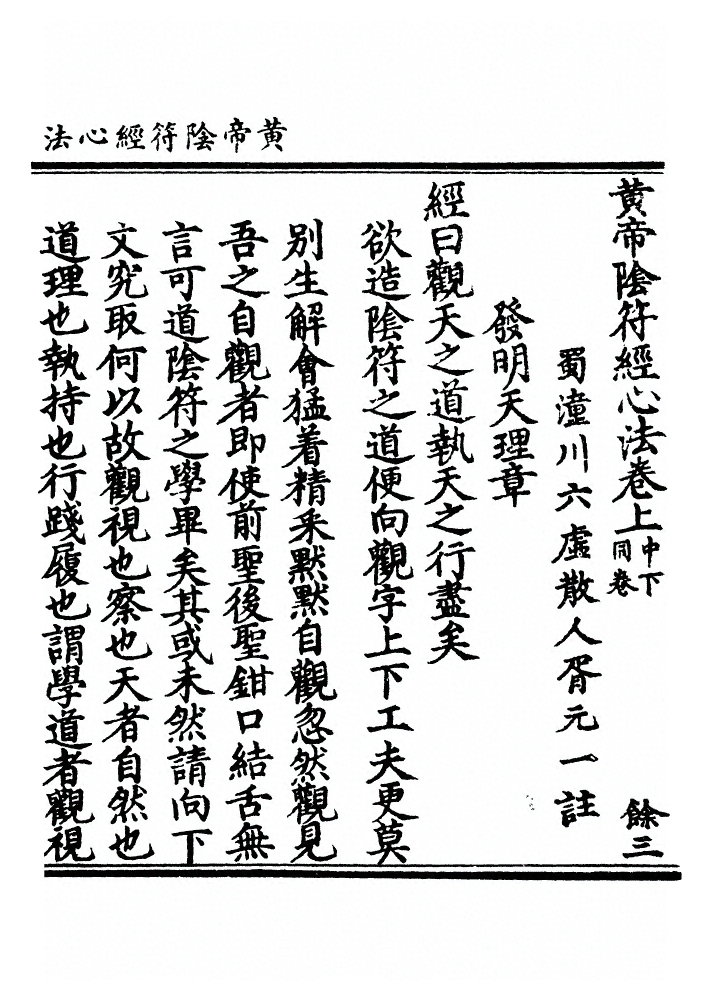 黃帝陰符經心法
黃帝陰符經心法卷上中下同卷 餘三
蜀潼川六虛散人胥元一註
發明天理章
經曰觀天之道執天之行盡矣
欲造陰符之道便向觀字上下工夫更莫
別生解會猛着精采默默自觀忽然觀見
吾之自觀者即使前聖後聖鉗口結舌無
言可道陰符之學畢矣其或未然請向下
文究取何以故觀視也察也天者自然也
道理也執持也行踐履也謂學道者觀視